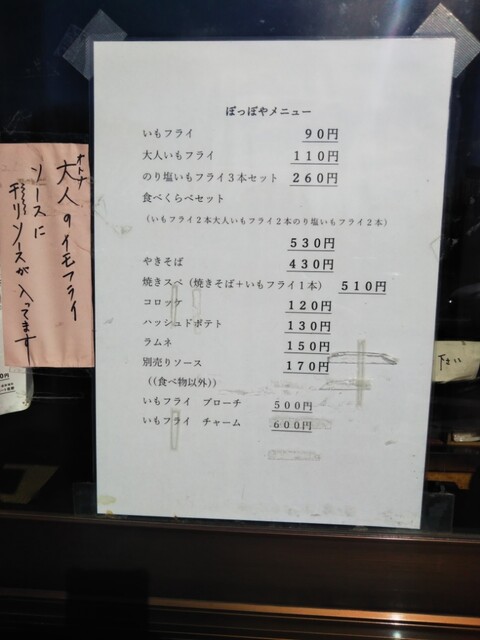 ぽっぽやメニュー
いもフライ 90円
大人いもフライ 110円
のり塩いもフライ3本セット 260円
食べくらべセット
(いもフライ2本大人いもフライ2本のり塩いもフライ2本)
530円
やきそば 430円
焼きスペ(焼きそば+いもフライ1本) 510円
コロッケ 120円
ハッシュドポテト 130円
ラムネ 150円
別売りソース 170円
((食べ物以外))
いもフライ ブローチ 500円
いもフライ チャーム 600円
オトナ
大人のイモフライ
ソースに
チリソースが入ってます
下さい